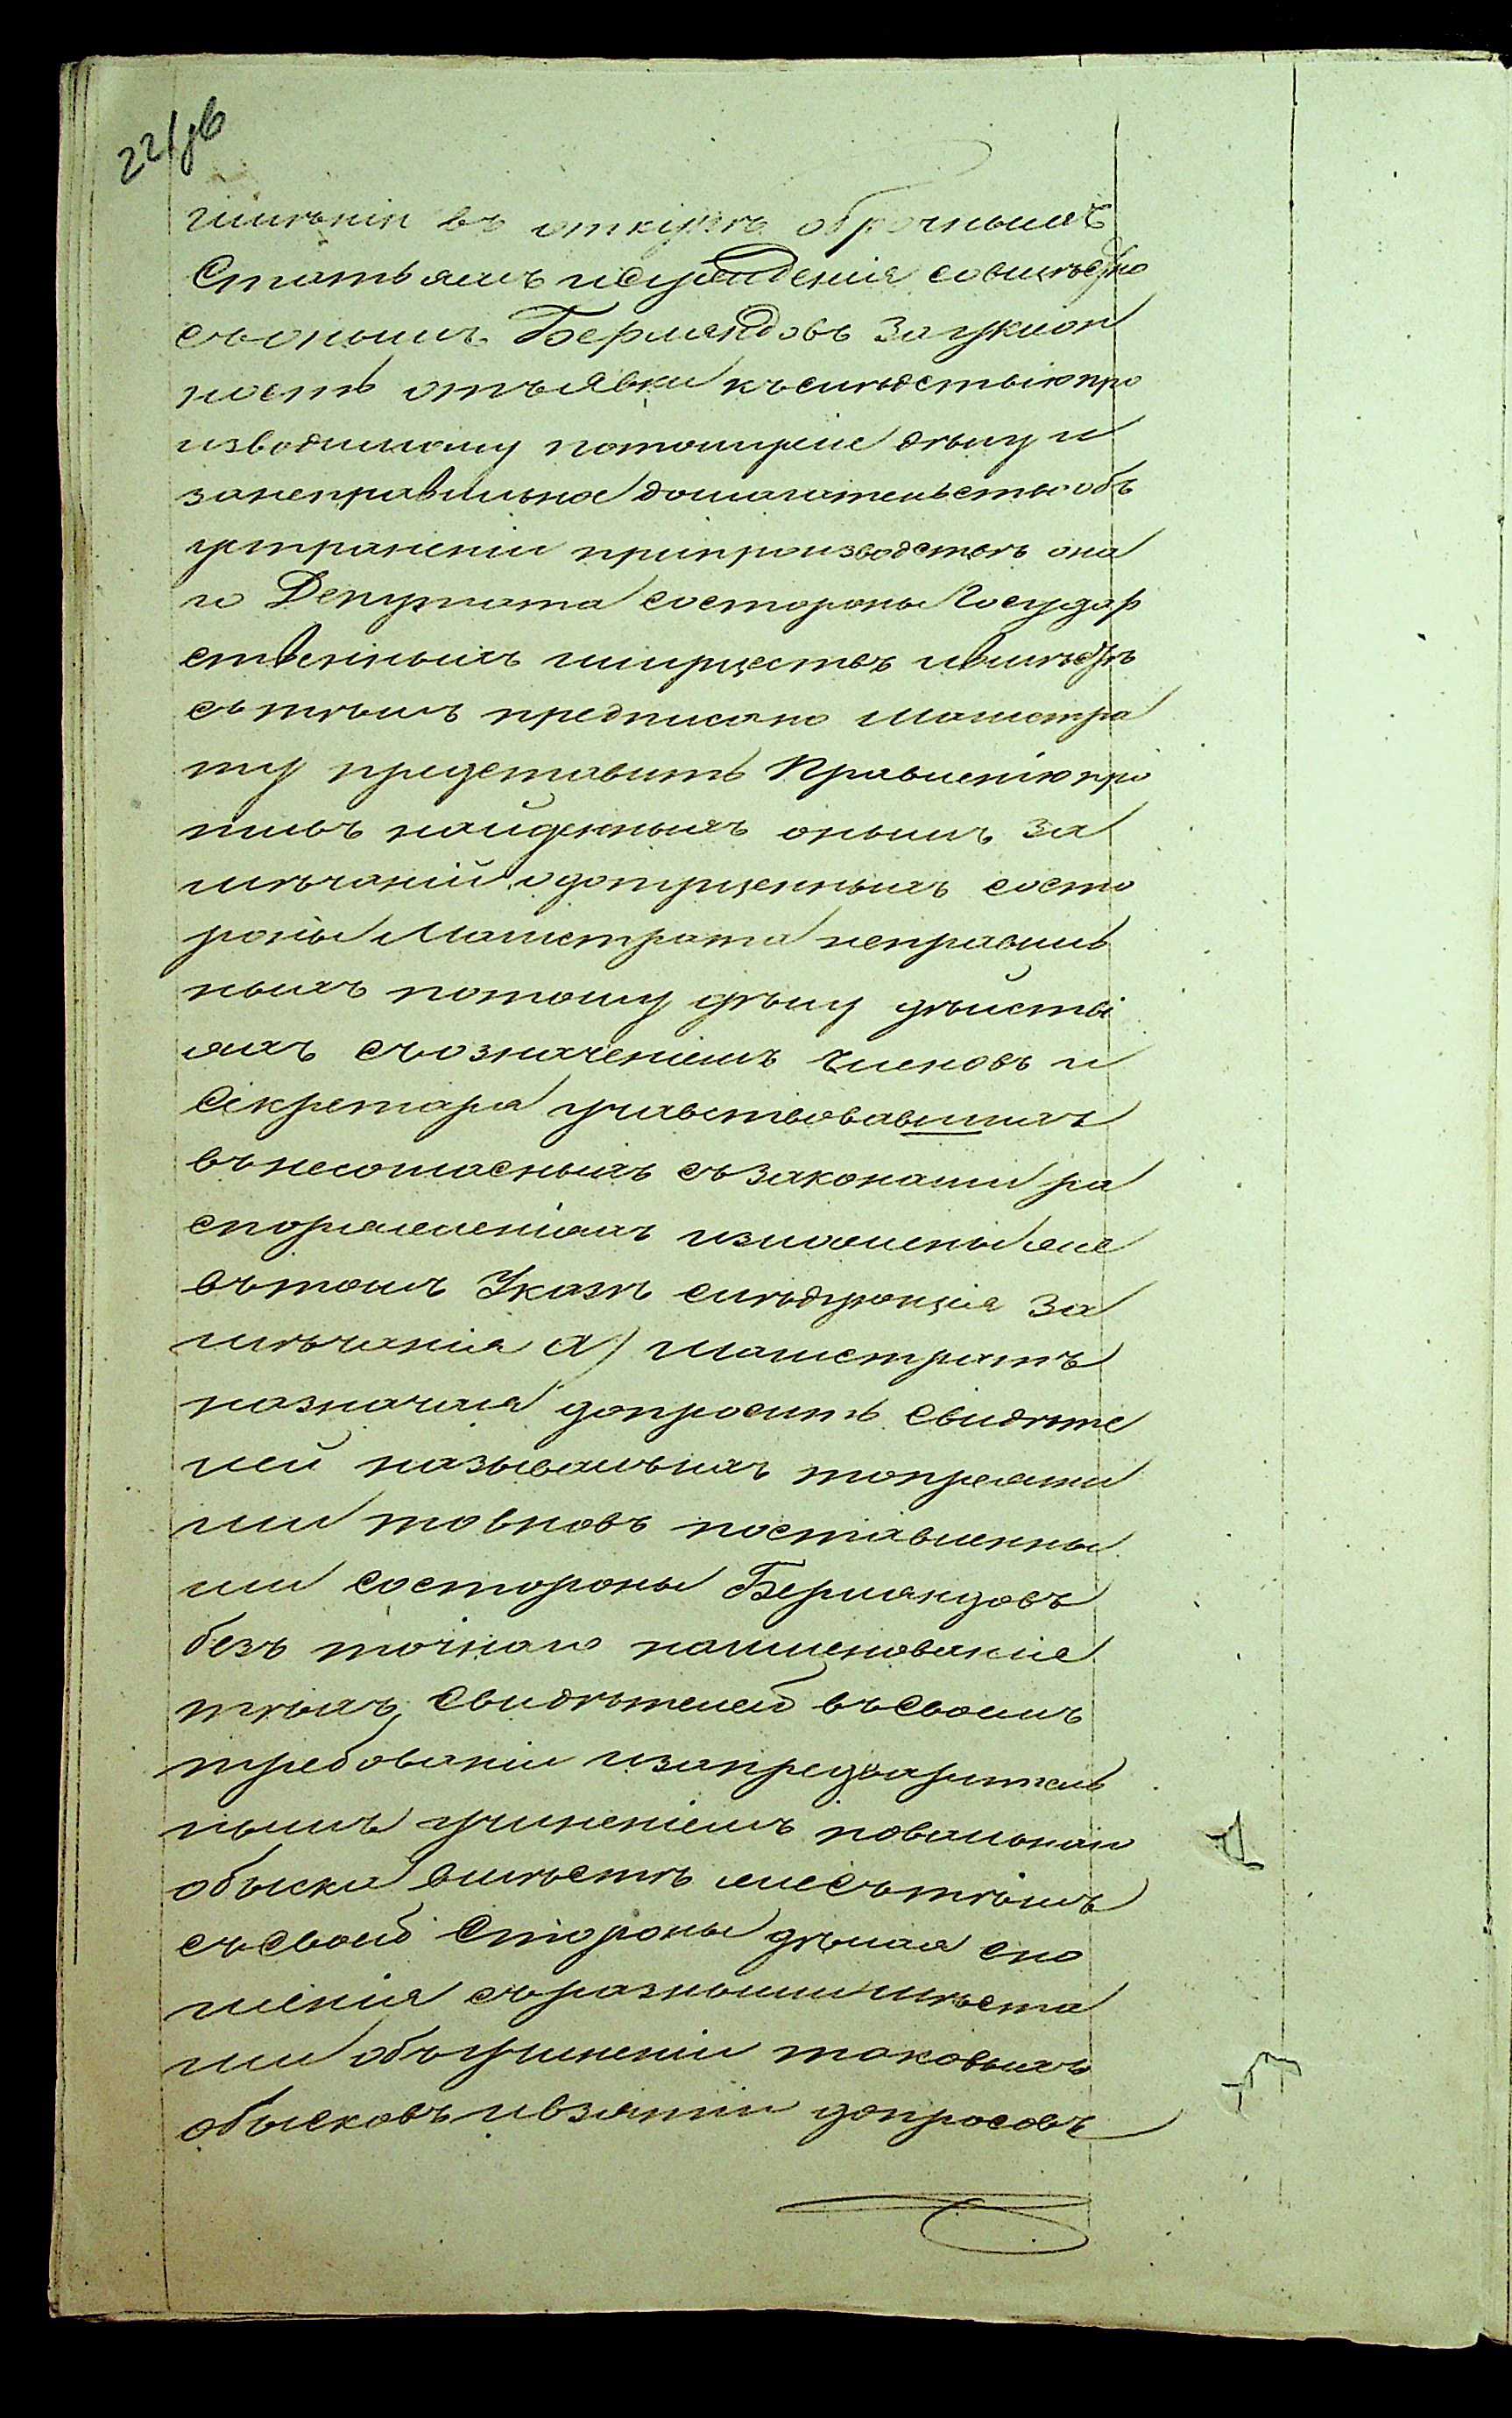 22/об
гимѣніи въ откупъ оброчнымъ
Статьямъ и сужденія совмѣстно
съ онымъ Бермандовъ за уклон
ность отъ явки къ слѣдствію про
изводимому по томуже дѣлу и
за неправильное домагательство объ
устраненіи при производствѣ она
го Депутата состороны Государ
ственныхъ имуществъ и вмѣстѣ
съ тѣмъ предписано Магистра
ту представить Правленію про
тивъ найденныхъ онымъ за
мѣчаній о допущенныхъ состо
роны Магистрата неправиль
ныхъ по тому дѣлу дѣйстві
яхъ съ означеніемъ членовъ и
Секретаря учавствовавшихъ
въ несогласныхъ съ законами ра
споряженіяхъ изложены же
въ томъ Указѣ слѣдующія за
мѣчанія а) Магистратъ
назначая допросить Свидѣте
лей называемыхъ то прежни
ми то вновь поставленны
ми состороны Бермандовъ
безъ точнаго наименованіе
тѣхъ Свидѣтелей въ своемъ
требованіи и за предварител
нымъ учиненіемъ повальнаго
обыска вмѣстѣ же съ тѣмъ
съ своей Стороны дѣлая сно
шенія съ разными мѣста
ми объ учиненіи таковыхъ
обысковъ и взятіи допросовъ